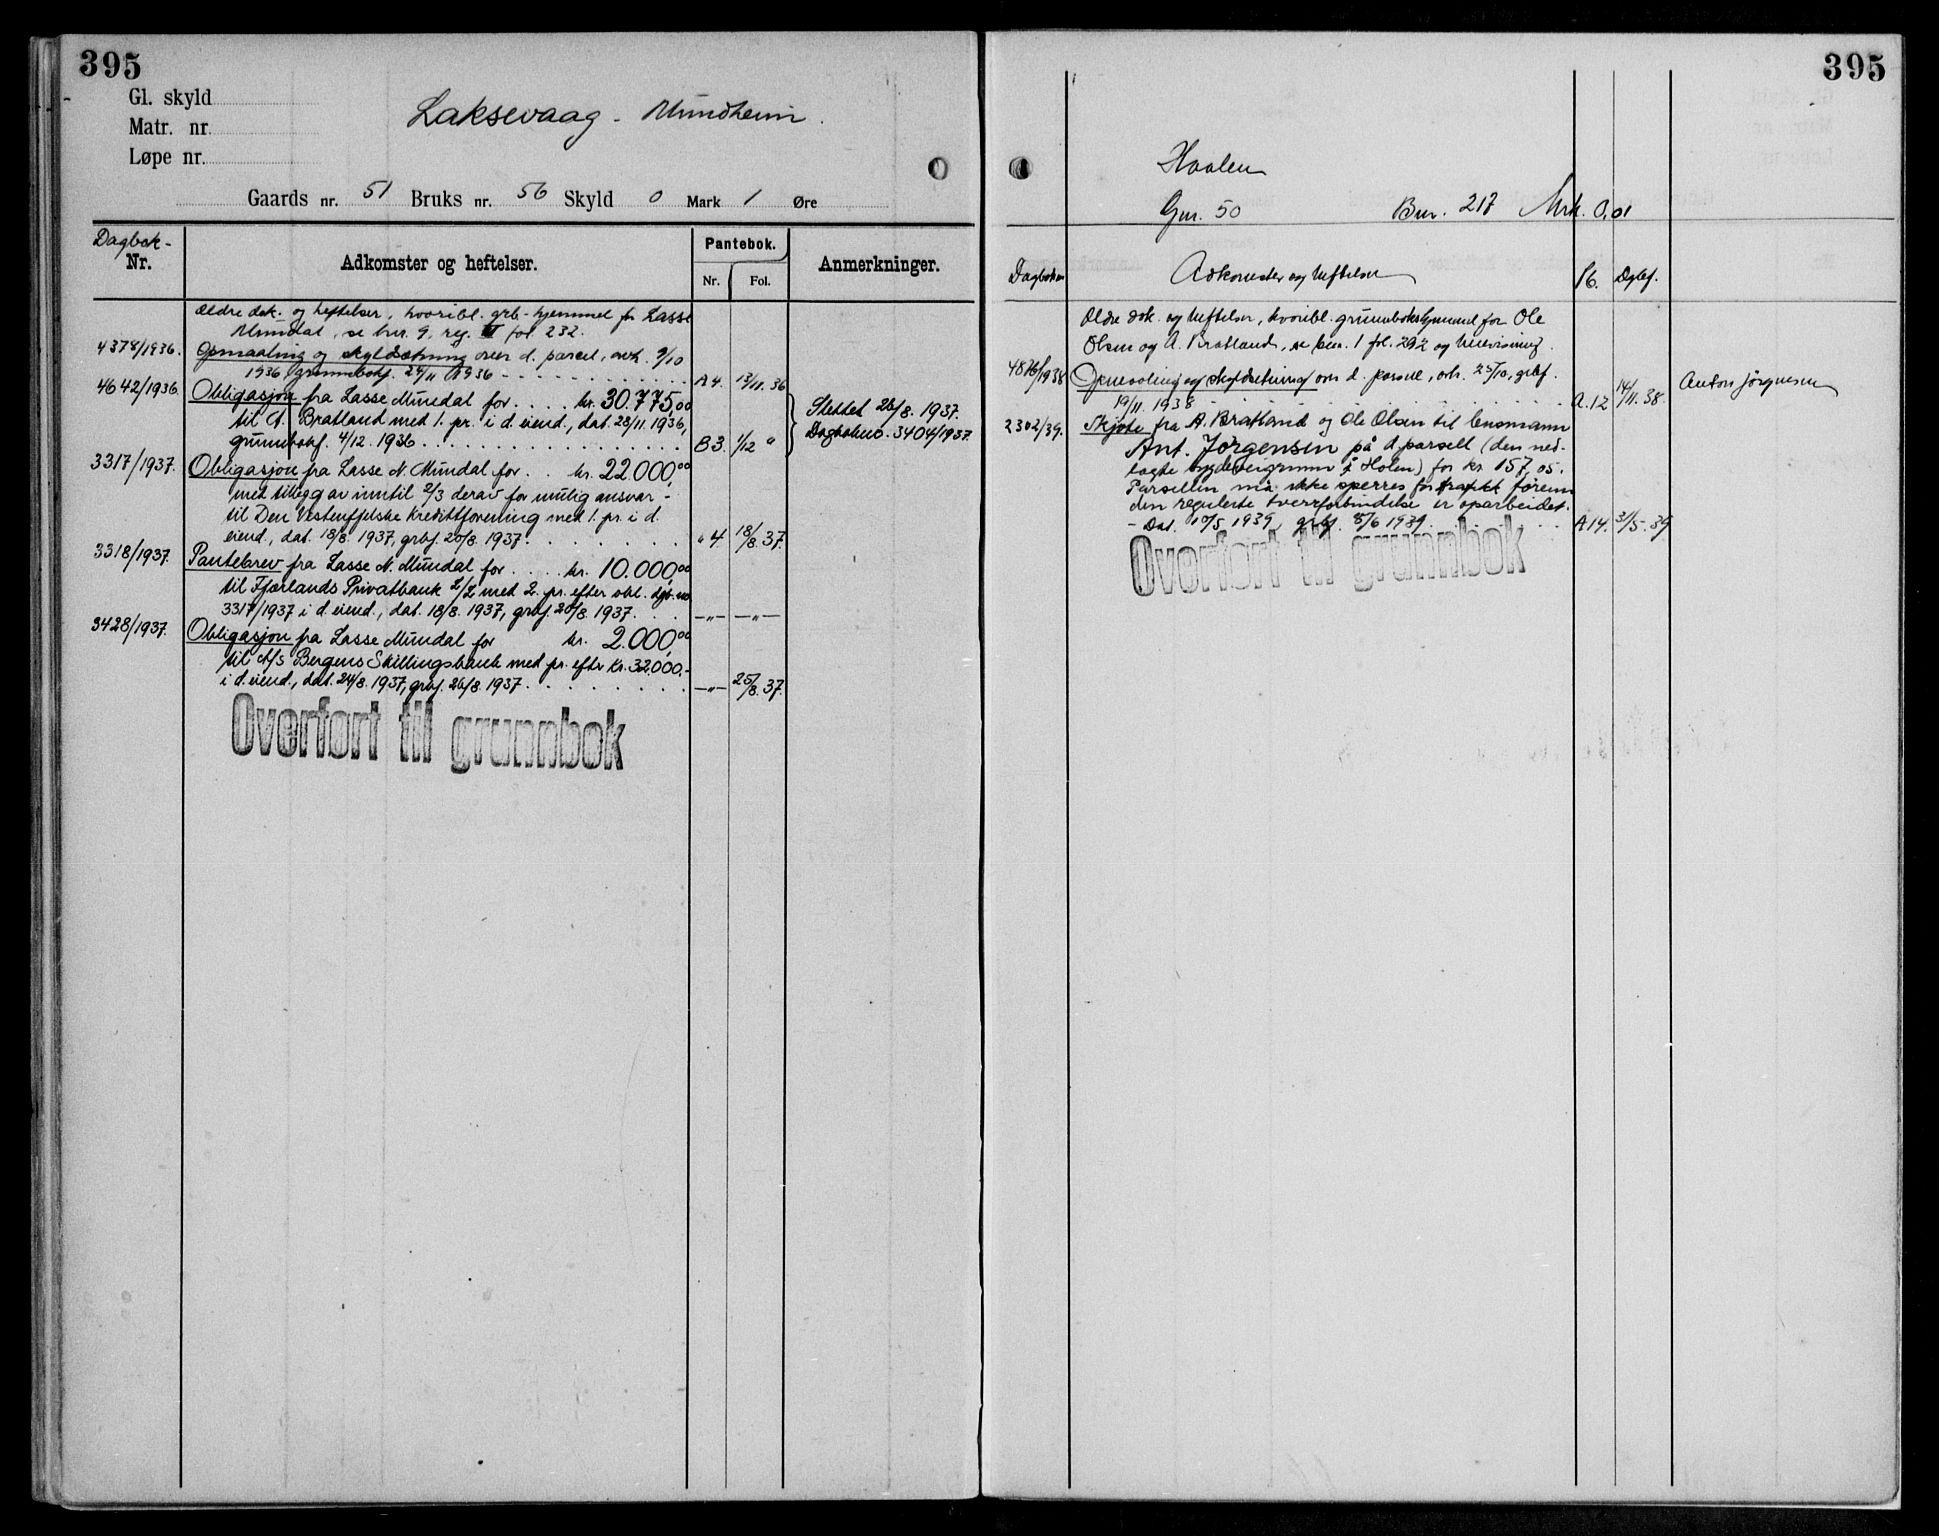 395
Gl. skyld
Matr. nr.
Løpe nr.
Laksevaag - Mundheim.
Gaards nr. 51 Bruks nr. 56 Skyld 0 Mark 1 Øre
Dagbok-
Nr.
Adkomster og heftelser.
Pantebok.
Nr. Fol.
Anmerkninger.
Ældre dok. og heftelser, hvoribl. grb-hjemmel for Lasse
Mundal, se bnr. 9, reg. fol 232.
4378/1936. Opmaaling og skyldsetning over d. parsel, avh. 9/10
1936 grunnbokf. 24/11 1936 - - - - A4. 13/11.36
4642/1936. Obligasjon fra Lasse Mundal for . . . . kr. 30.775,00
til A. Bratland med 1. pr. i d. eiend., dat. 28/11 1936,
grunnbokf. 4/12. 1936 . . . . B3. 1/12 "
Slettet 28/8. 1937.
Dagbokno. 3404/1937.
3317/1937. Obligasjon fra Lasse N. Mundal for . . kr. 22.000,00
met tillegg av inntil 2/3 derav for mulig ansvar -
til Den Vestenfjelske Kredittforening med 1. pr. i d.
eiend., dat. 18/8. 1937, grbf. 20/8. 1937. . . . " 4. 18/8.37.
3318/1937. Pantebrev fra Lasse N. Mundal for . . . . kr. 10.000,00
til Fjærlands Privatbank L/L med 2. pr. efter obl. dgb.no
3317/1937 i d. eiend., dat. 18/8. 1937, grbf. 20/8. 1937. . . . —"— —"—
3428/1937. Obligasjon fra Lasse Mundal for kr. 2.000,00
til A/S Bergens Skillingsbank med pr. efter kr. 32.000.-
i d. eiend., dat. 24/8. 1937, grbf. 26/8. 1937 . . . . —"— 25/8.37.
Overført til grunnbok
395
Haalen
Gnr. 50 Bnr. 217 Mrk. 0.01
Dagboken Adkomster og heftelser Pb. Dgbf.
Eldre dok. og heftelser, hvoribl. grunnbokshjemmel for Ole
Olsen og A. Bratland, se bnr. 1 fol. 292 og henvisning.
4876/1938 Opmaaling og skyldsetning over d. parsel, avh. 25/10, grbf.
19/11. 1938 . . . . A.12 14/11.38. Anton Jörgensen
2302/39. Skjøte fra A. Bratland og Ole Olsen til lensmann
Ant. Jörgensen på d. parsell (den ned-
lagte bygdeveigrunn i Holen) for kr. 157,05.
Parsellen må ikke sperres for trafikk förenn
den regulerte tverrforbindelse er oparbeidet.
- Dat. 10/5 1939, grbf. 5/6 1939. . . . A14. 31/5.39
Overført til grunnbok